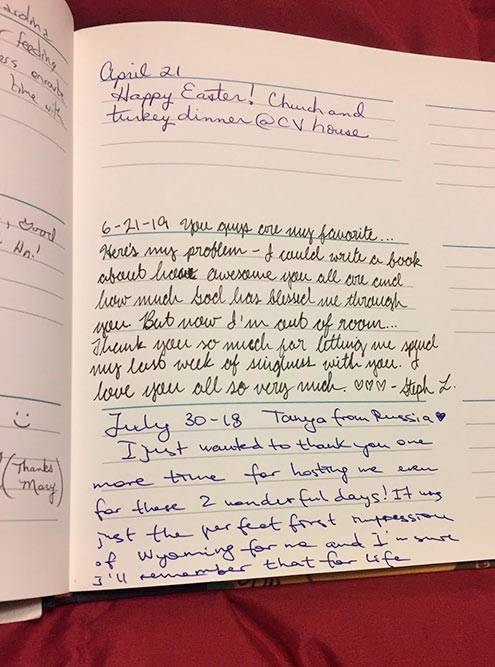 ardma
feeding
ers
time with
, Good
Ho!
Thanks
Mary
April 21
Happy Easter! Church and
turkey dinner @ CV house
6-21-19 You guys are my favorite...
Here's my problem - I could write a book
about how awesome you all are and
how much God has blessed me through
you. But now I'm out of room...
Thank you so much for letting me spend
my last week of singleness with you. I
love you all so very much. ♡♡♡ - Steph L.
July 30-18 Tanya from Russia ♥
I just wanted to thank you one
more time for hosting me even
for these 2 wonderful days! It was
just the perfect first impression
of Wyoming for me and I'm sure
I'll remember that for life